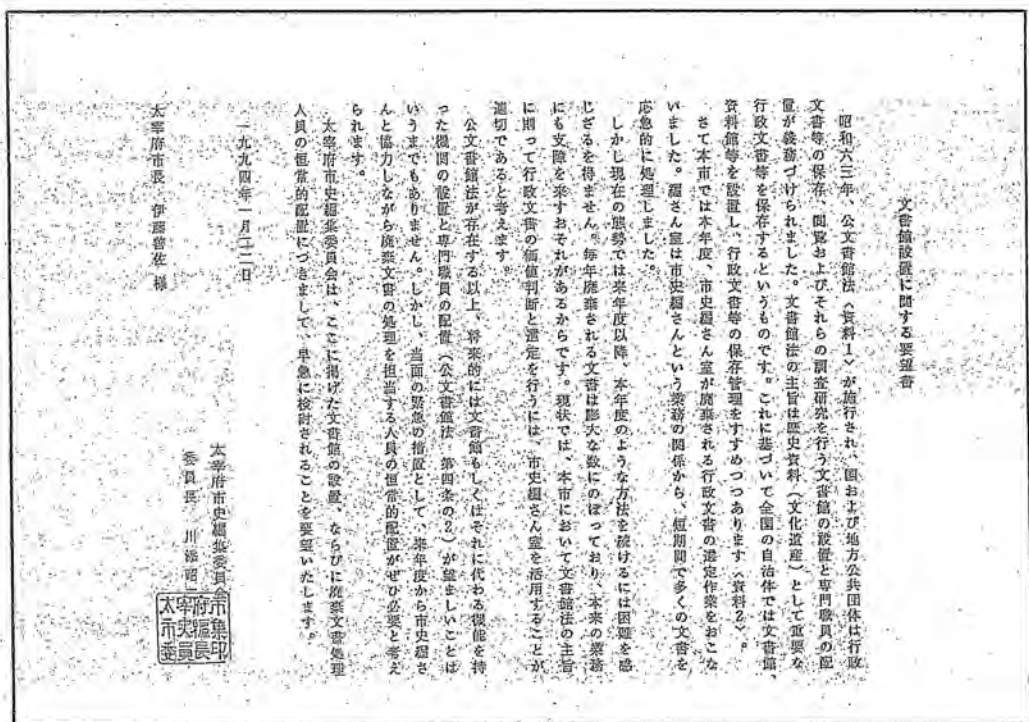 文書館設置に関する要望書
昭和六三年、公文書館法〈資料1〉が施行され、国および地方公共団体は行政
文書等の保存、閲覧およびそれらの調査研究を行う文書館の設置と専門職員の配
置が義務づけられました。文書館法の主旨は歴史資料(文化遺産)として重要な
行政文書等を保存するというものです。これに基づいて全国の自治体では文書館、
資料館等を設置し、行政文書等の保存管理をすすめつつあります〈資料2〉。
さて本市では本年度、市史編さん室が廃棄される行政文書の選定作業をおこな
いました。編さん室は市史編さんという業務の関係から、短期間で多くの文書を
応急的に処理しました。
しかし現在の態勢では来年度以降、本年度のような方法を続けるには困難を感
じざるを得ません。毎年廃棄される文書は膨大な数にのぼっており、本来の業務
にも支障を来すおそれがあるからです。現状では、本市において文書館法の主旨
に則って行政文書の価値判断と選定を行うには、市史編さん室を活用することが
適切であると考えます。
公文書館法が存在する以上、将来的には文書館もしくはそれに代わる機能を持
った機関の設置と専門職員の配置(公文書館法 第四条の2)が望ましいことは
いうまでもありません。しかし、当面の緊急の措置として、来年度から市史編さ
んと協力しながら廃棄文書の処理を担当する人員の恒常的配置がぜひ必要と考え
られます。
太宰府市史編集委員会は、ここに掲げた文書館の設置、ならびに廃棄文書処理
人員の恒常的配置につきまして、早急に検討されることを要望いたします。
一九九四年一月二二日
太宰府市史編集委員会
委員長 川添昭
太宰府市長 伊藤善佐 様